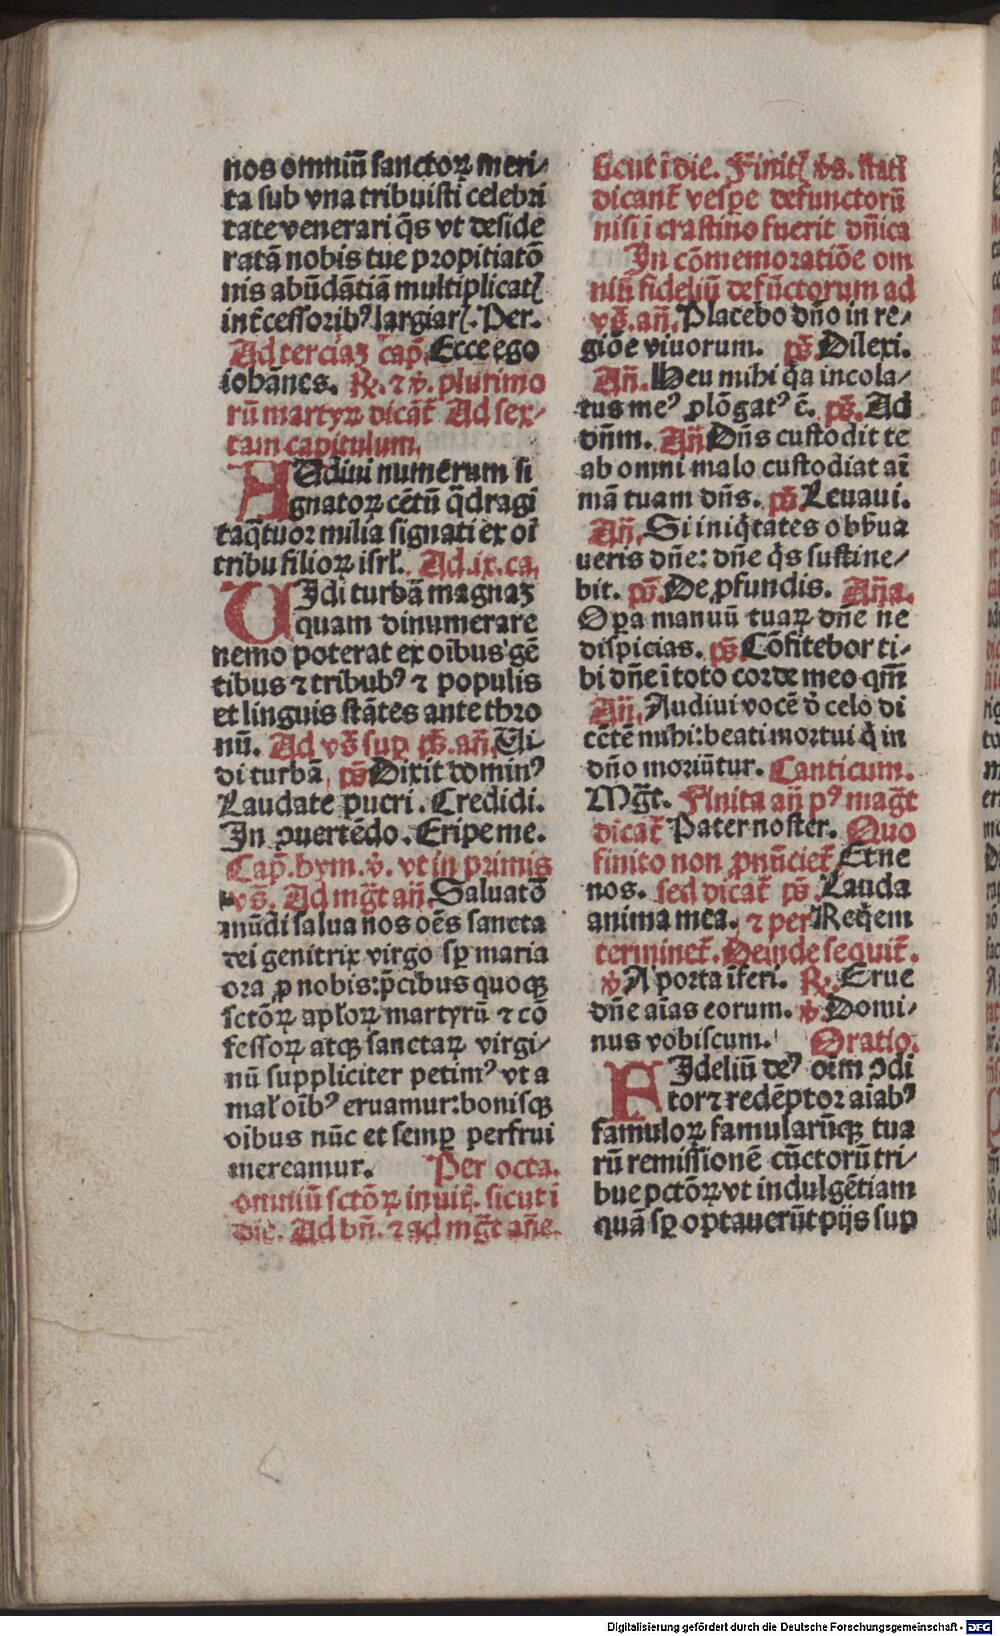 nos omniū sanctoꝝ meri⸗
ta sub vna tribuisti celebri
tate venerari q̄s vt deside
ratā nobis tue propitiatō
nis abūdātiā multiplicatꝭ
int̄cessoribꝰ largiarꝭ. Per.
Ad terciaꝫ cap̄. Ecce ego
iohānes. ℟. ⁊ ℣. plurimo
rū martyꝝ dicāt̄ Ad sex⸗
tam capitulum.
AUdiui numerum si
gnatoꝝ cētū q̄dragī
taq̄tuor milia signati ex oī
tribu filioꝝ isrł. Ad .ix. ca.
UIdi turbā magnaꝫ
quam dinumerare
nemo poterat ex oībus gē
tibus ⁊ tribubꝰ ⁊ populis
et linguis stātes ante thro
nū. Ad vs̄ suꝑ ps̄. añ. Ui⸗
di turbā ps̄ Dixit dominꝰ
Laudate pueri. Credidi.
In ↄuertēdo. Eripe me.
Cap̄. hym. ℣. vt in primis
vs̄. Ad mḡt añ. Saluatō
mūdi salua nos oēs sancta
dei genitrix virgo sꝑ maria
ora ꝓ nobis: p̄cibus quoqꝫ
sctōꝝ apłoꝝ martyrū ⁊ cō
fessoꝝ atqꝫ sanctaꝝ virgi⸗
nū suppliciter petimꝰ vt a
mał oībꝰ eruamur: bonisqꝫ
oibus nūc et semꝑ perfrui
mereamur. Per octa.
omniū sctōꝝ inuit̄. sicut ī
die. Ad bn̄. ⁊ ad mḡt añe
sicut ī die. Finitꝭ v̄s. statī
dicant̄ vesꝑe defunctorū
nisi ī crastino fuerit dn̄ica
In cōmemoratiōe om
niū fideliū defūctorum ad
vs̄. añ. Placebo dn̄o in re⸗
giōe viuorum. ps̄. Dilexi.
Añ. Heu mihi q̄a incola⸗
tus meꝰ ꝓlōgatꝰ ē. ps̄. Ad
dn̄m. Añ Dn̄s custodit te
ab omni malo custodiat aī
mā tuam dn̄s. ps̄ Leuaui.
Añ. Si iniq̄tates obẜua
ueris dn̄e: dn̄e q̄s sustine⸗
bit. ps̄. De ꝓfundis. Aña.
Oꝑa manuū tuaꝝ dn̄e ne
dispicias. ps̄ Cōfitebor ti⸗
bi dn̄e ī toto corde meo qm̄
Añ. Audiui vocē d̄ celo di
cētē mihi: beati mortui q̄ in
dn̄o moriūtur. Canticum.
Mḡt. Finita añ pꝰ mag̅t
dicat̄ Pater noster. Quo
finito non ꝓnūciet̄ Et ne
nos. sed dicat̄ ps̄. Lauda
anima mea. ⁊ per Req̄em
terminet̄. Deinde sequit̄.
℣ A porta īferi. ℟. Erue
dn̄e aīas eorum. ℣ Domi⸗
nus vobiscum. Oratio.
FIdeliū deꝰ oīm ↄdi
tor ⁊ redēptor aīabꝰ
famuloꝝ famularūqꝫ tua
rū remissionē cūctorū tri⸗
bue pctōꝝ vt indulgētiam
quā sꝑ optauerūt pijs sup
Digitalisierung gefördert durch die Deutsche Forschungsgemeinschaft - DFG